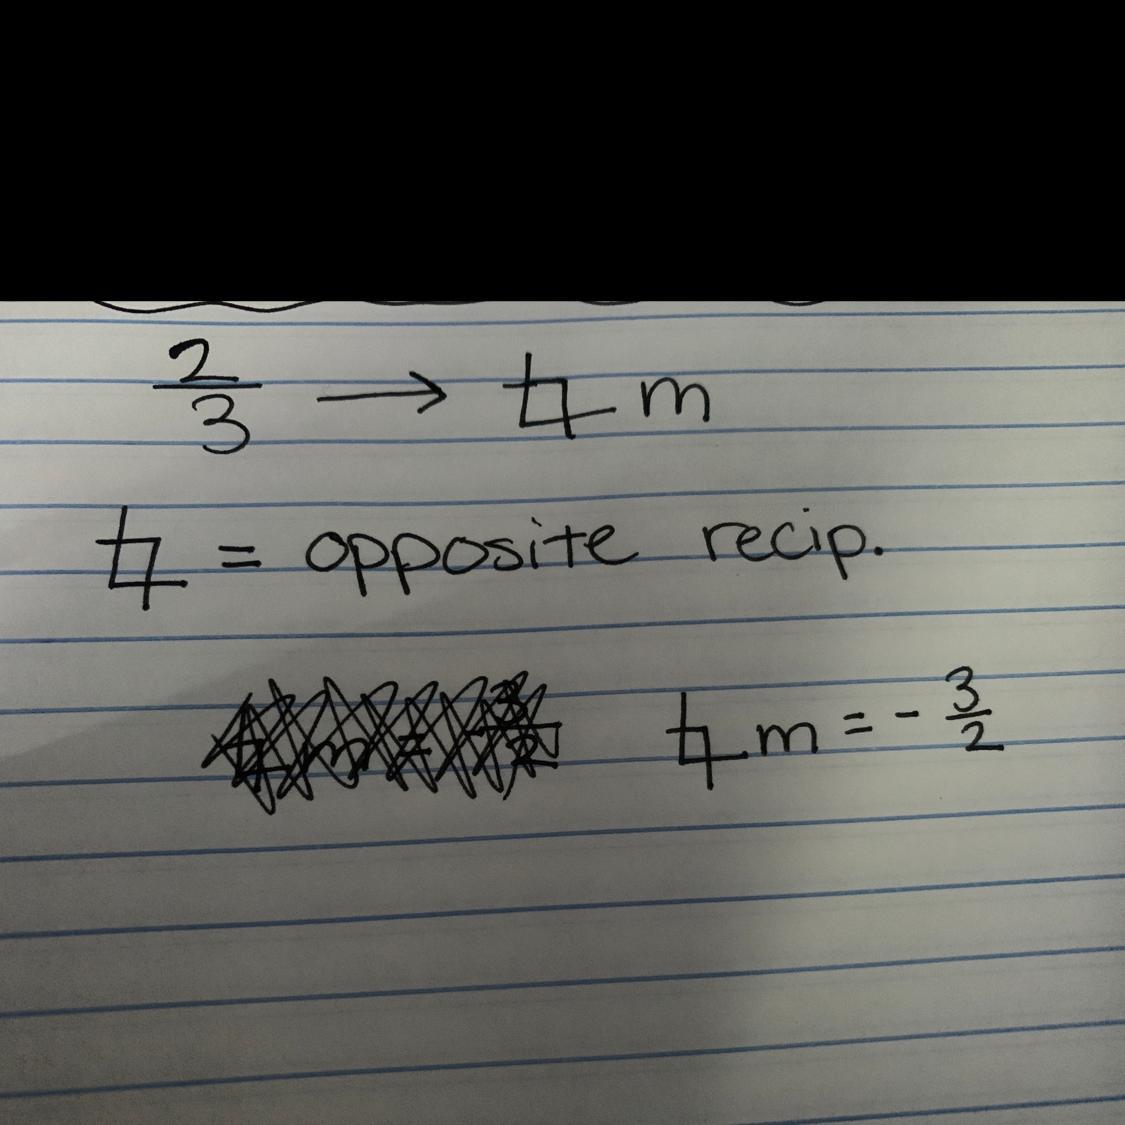 2/3 → ⊥ m
⊥ = opposite recip.
⊥ m = - 3/2